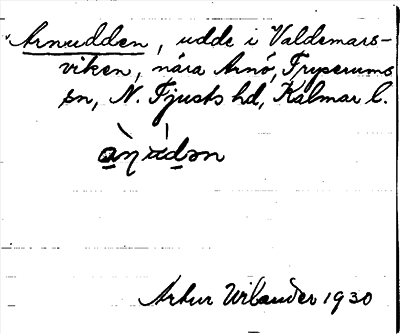 Arnudden, udde i Valdemars-
viken, nära Arnö, Tryserums
sn, N. Tjusts hd, Kalmar l.
Artur Wilander 1930